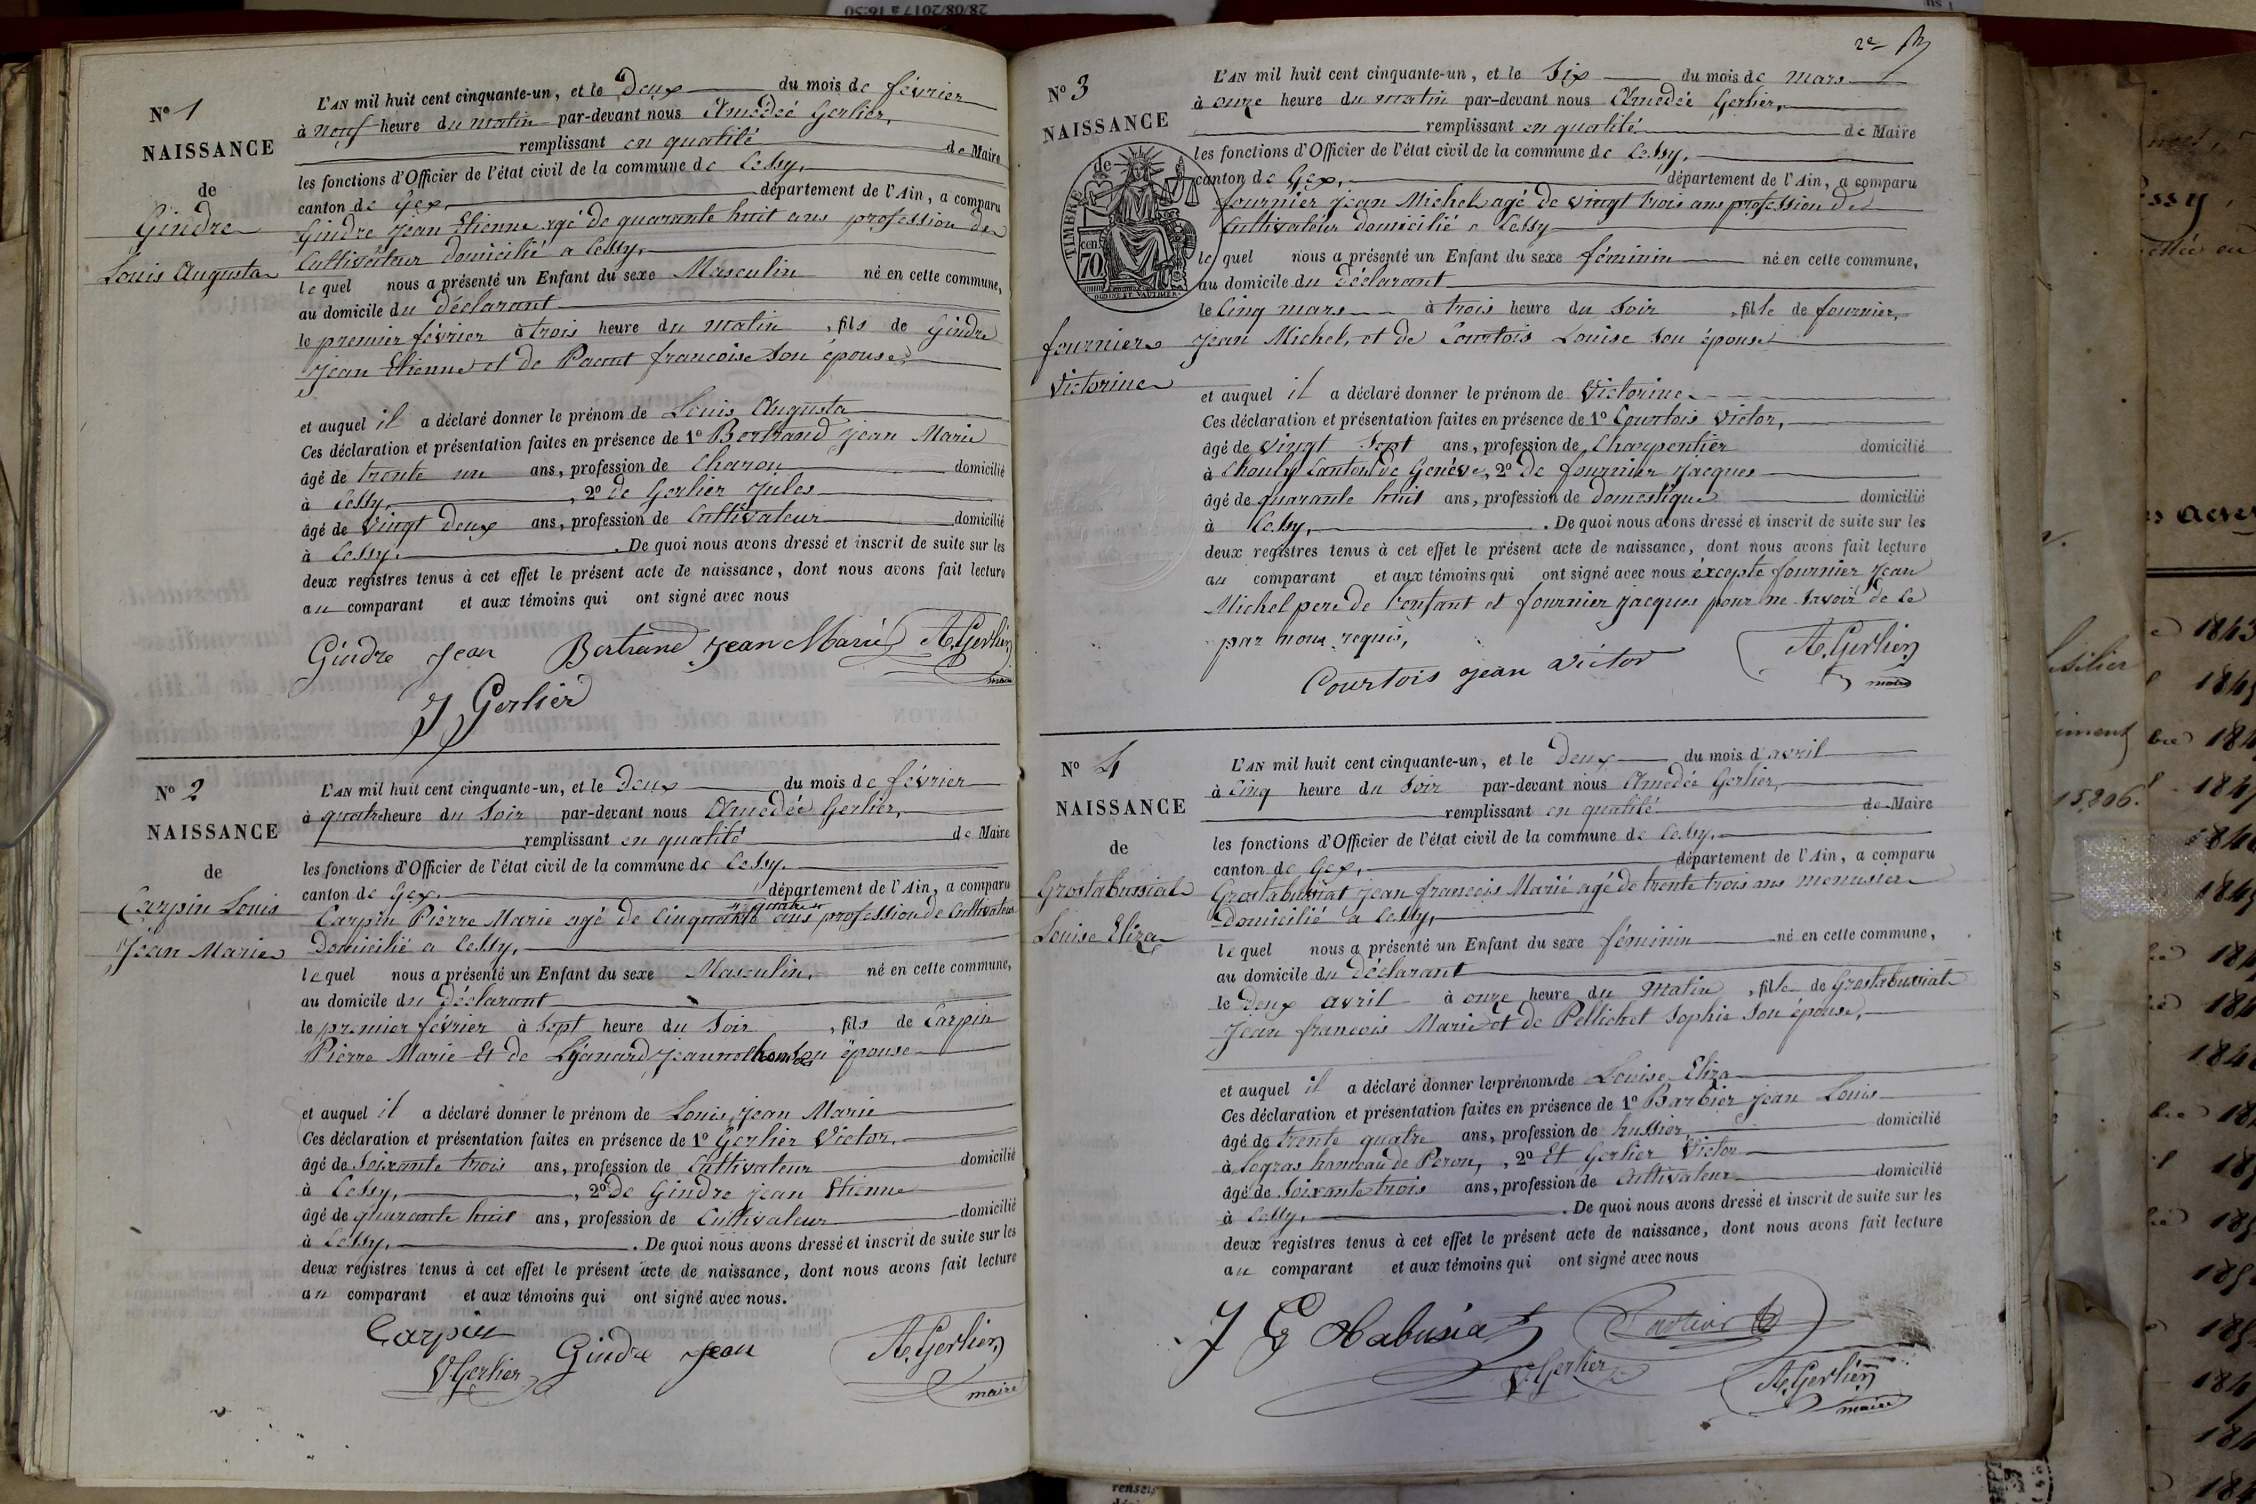 28/08/2017 à 16:50
Nº 1
NAISSANCE
de
Gindre
Louis Augusta
L'AN mil huit cent cinquante-un, et le Deux du mois de février
à neuf heure du matin par-devant nous Amédeé Gerlier,
remplissant en qualité de Maire
les fonctions d'Officier de l'état civil de la commune de Cessy,
canton de Gex, département de l'Ain, a comparu
Gindre Jean Etienne agé de quarante huit ans profession de
Cultivateur domicilié a Cessy,
lequel nous a présenté un Enfant du sexe Masculin né en cette commune,
au domicile du Déclarant
le premier février à trois heure du matin, fils de Gindre
Jean Etienne et de francoise son épouse
et auquel il a déclaré donner le prénom de Louis Augusta
Ces déclaration et présentation faites en présence de 1º Bertrand Jean Marie
âgé de trente un ans, profession de Charon domicilié
à Cessy, , 2º de Gerlier Jules
âgé de vingt deux ans, profession de Cultivateur domicilié
à Cessy. . De quoi nous avons dressé et inscrit de suite sur les
deux registres tenus à cet effet le présent acte de naissance, dont nous avons fait lecture
au comparant et aux témoins qui ont signé avec nous
Gindre Jean Bertrand Jean Marie A. Gerlier
maire
J Gerlier
Nº 2
NAISSANCE
de
Carpin Louis
Jean Marie
L'AN mil huit cent cinquante-un, et le Deux du mois de février
à quatre heure du Soir par-devant nous Amedée Gerlier,
remplissant en qualité de Maire
les fonctions d'Officier de l'état civil de la commune de Cessy.
canton de Gex, département de l'Ain, a comparu
Carpin Pierre Marie agé de Cinquante quatre ans profession de Cultivateur
Domicilié a Cessy,
lequel nous a présenté un Enfant du sexe Masculin, né en cette commune,
au domicile du Déclarant
le premier février à Sept heure du Soir, fils de Carpin
Pierre Marie Et de épouse
et auquel il a déclaré donner le prénom de Louis Jean Marie
Ces déclaration et présentation faites en présence de 1º Gerlier Victor,
âgé de Soixante trois ans, profession de Cultivateur domicilié
à Cessy, , 2º de Gindre Jean Etienne
âgé de quarante huit ans, profession de Cultivateur domicilié
à Cessy, . De quoi nous avons dressé et inscrit de suite sur les
deux registres tenus à cet effet le présent acte de naissance, dont nous avons fait lecture
au comparant et aux témoins qui ont signé avec nous.
Carpin
V. Gerlier Gindre Jean A. Gerlier
maire
2e
Nº 3
NAISSANCE
de
TIMBRE
cen
70
fournier
Victorine
L'AN mil huit cent cinquante-un, et le Six du mois de mars
à onze heure du matin par-devant nous Amedée Gerlier,
remplissant en qualité de Maire
les fonctions d'Officier de l'état civil de la commune de Cessy,
canton de Gex, département de l'Ain, a comparu
fournier Jean Michel agé de vingt trois ans profession de
Cultivateur domicilié a Cessy
lequel nous a présenté un Enfant du sexe féminin né en cette commune,
au domicile du Déclarant
le Cinq mars à trois heure du Soir, fille de fournier,
Jean Michel, et de Courtois Louise son épouse
et auquel il a déclaré donner le prénom de Victorine
Ces déclaration et présentation faites en présence de 1º Courtois Victor,
âgé de vingt Sept ans, profession de Charpentier domicilié
à Chouly Canton de Genéve, 2º de fournier Jacques
âgé de quarante huit ans, profession de domestique domicilié
à Cessy, . De quoi nous avons dressé et inscrit de suite sur les
deux registres tenus à cet effet le présent acte de naissance, dont nous avons fait lecture
au comparant et aux témoins qui ont signé avec nous éxcepté fournier Jean
Michel pere de l'enfant et fournier Jacques pour ne Savoir de ce
par nous requis,
Courtois Jean Victor A. Gerlier
maire
Nº 4
NAISSANCE
de
Grostabussiat
Louise Eliza
L'AN mil huit cent cinquante-un, et le Deux du mois d'avril
à cinq heure du Soir par-devant nous Amedée Gerlier,
remplissant en qualité de Maire
les fonctions d'Officier de l'état civil de la commune de Cessy,
canton de Gex, département de l'Ain, a comparu
Grostabussiat Jean francois Marié agé de trente trois ans menusier
Domicilié a Cessy,
lequel nous a présenté un Enfant du sexe féminin né en cette commune,
au domicile du Déclarant
le Deux avril à onze heure du matin, fille de Grostabussiat
Jean francois Marie et de Pellichet Sophie Son épouse,
et auquel il a déclaré donner les prénoms de Louise Eliza
Ces déclaration et présentation faites en présence de 1º Barbier Jean Louis
âgé de trente quatre ans, profession de hussier, domicilié
à Logras hameau de Peron, , 2º Et Gerlier Victor
âgé de Soixante trois ans, profession de Cultivateur domicilié
à Cessy, . De quoi nous avons dressé et inscrit de suite sur les
deux registres tenus à cet effet le présent acte de naissance, dont nous avons fait lecture
au comparant et aux témoins qui ont signé avec nous
V. Gerlier A. Gerlier
maire